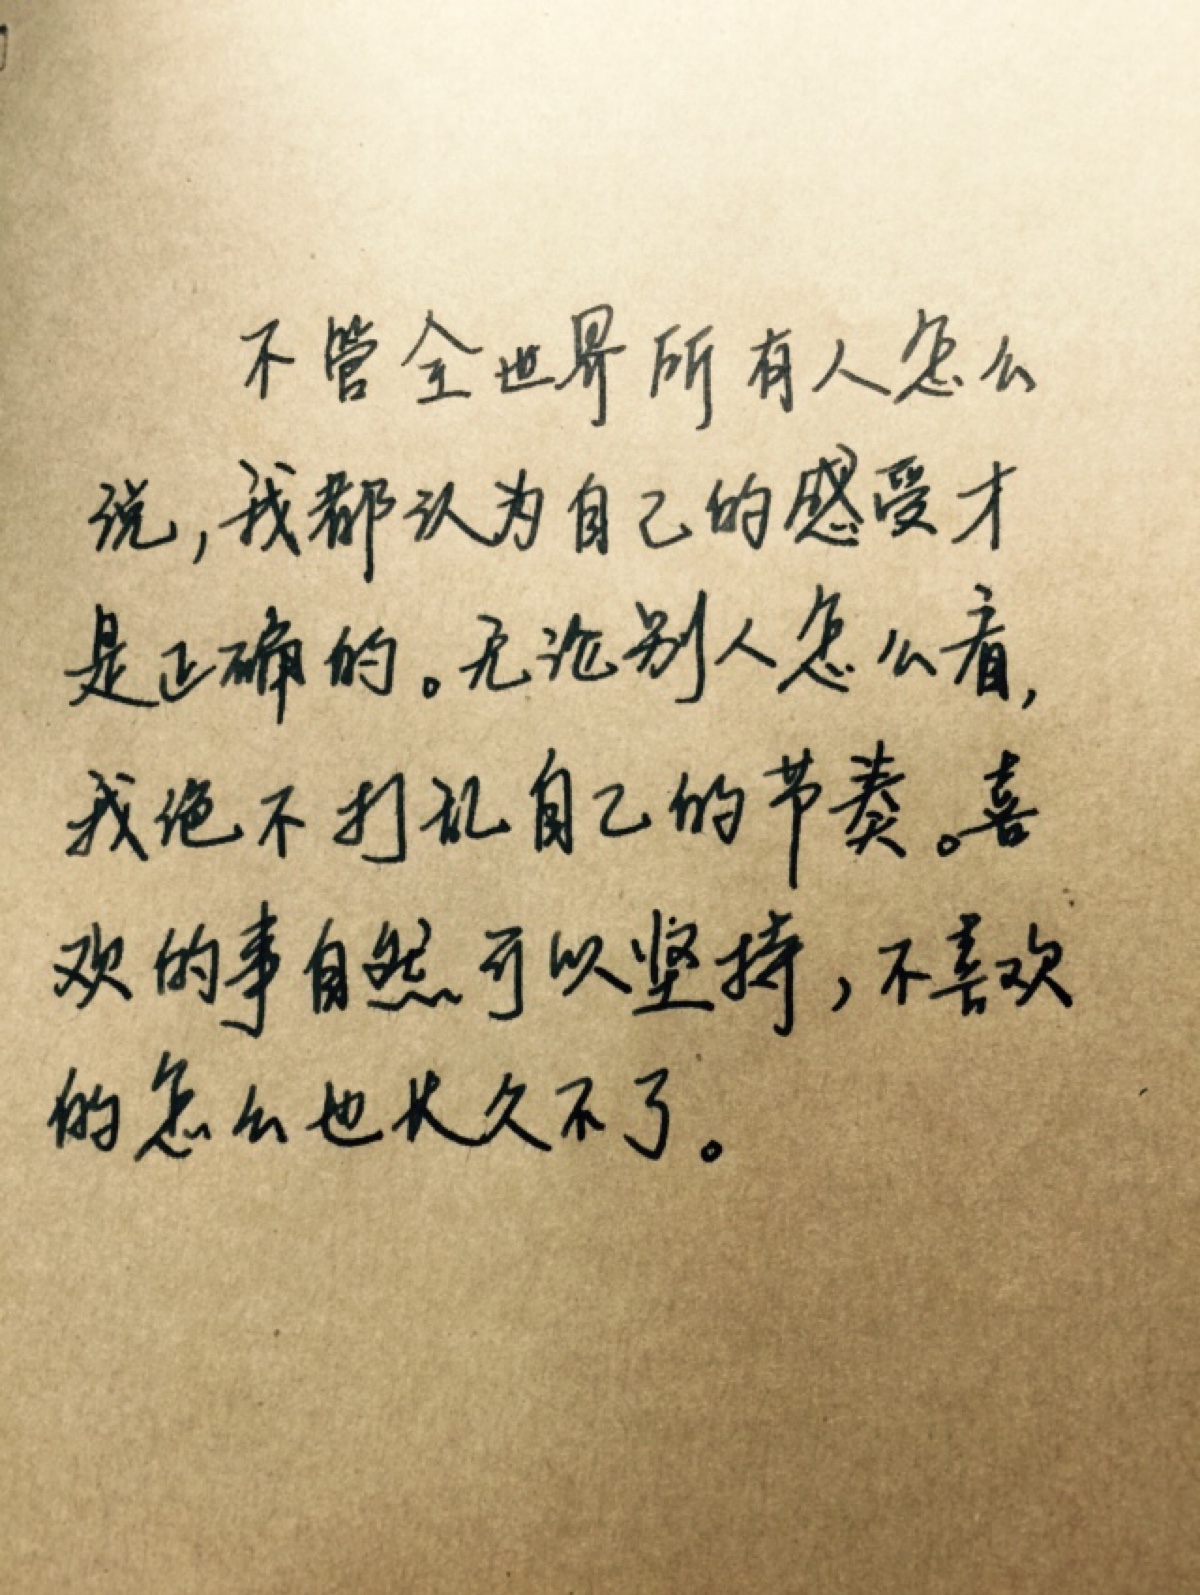 不管全世界所有人怎么
说,我都认为自己的感受才
是正确的。无论别人怎么看,
我绝不打乱自己的节奏。喜
欢的事自然可以坚持,不喜欢
的怎么也长久不了。